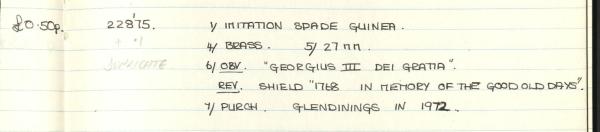 £0.50p. 22875. 1/ IMITATION SPADE GUINEA.
4/ BRASS. 5/ 27mm.
DUPLICATE 6/ OBV. "GEORGIUS III DEI GRATIA".
REV. SHIELD "1768 IN MEMORY OF THE GOOD OLD DAYS".
7/ PURCH. GLENDININGS IN 1972.